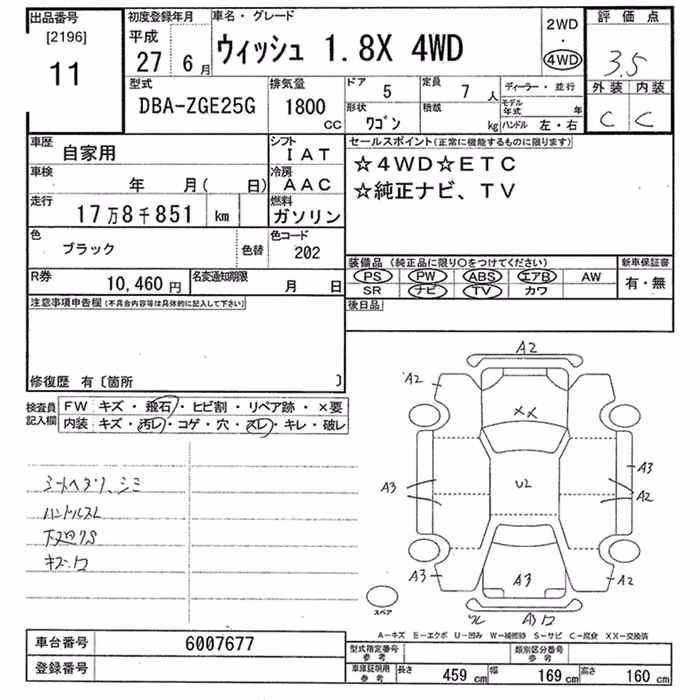 出品番号 初度登録年月 車名・グレード 2WD 評価点
[2196] 平成 ・
11 27 6月 ウィッシュ 1.8X 4WD 4WD 3.5
型式 排気量 ドア 5 定員 7人 ディーラー・並行 外装 内装
DBA-ZGE25G 1800cc 形状 ワゴン 積載 kg モデル年式 年 C C
ハンドル 左・右
車歴 自家用 シフト IAT セールスポイント(正常に機能するものに限ります)
車検 年 月( 日) 冷房 AAC ☆4WD☆ETC
走行 17万8千851 km 燃料 ガソリン ☆純正ナビ、TV
色 ブラック 色替 色コード 202
装備品(純正品に限り○をつけてください) 新車保証書
R券 10,460円 名変通知期限 月 日 PS PW ABS エアB AW 有・無
SR ナビ TV カワ
注意事項申告欄(不具合内容等は具体的に記入して下さい) 後日品
修復歴 有〔箇所 〕
検査員記入欄 FW キズ・飛石・ヒビ割・リペア跡・×要
内装 キズ・汚レ・コゲ・穴・スレ・キレ・破レ
シートヘタリ、シミ
ハンドルスレ
下廻りS
キズ・凹
A2
A2
XX
A3 U2 A3
A2
A3 A3 A2
スペア
A-キズ E-エクボ U-凹み W-補修跡 S-サビ C-腐食 XX-交換済
車台番号 6007677 型式指定番号参考 類別区分番号参考
登録番号 車庫証明用参考 長さ 459cm 幅 169cm 高さ 160cm